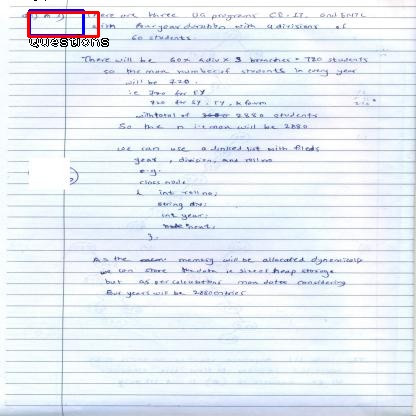 Q1 A 1) There are three UG programs CE, IT, and ENTC
with four year duration with 4 divisions of
60 students
Questions
There will be 60 x 4 div x 3 branches = 720 students
so the max number of students in every year
will be 720.
i.e 720 for FY
720 for SY, TY,
with total of 2880 students
So the n i.e max will be 2880
we can use a linked list with fileds
year, division, and roll no
e.g.
class node
{ int roll no;
string div;
int year;
node *next;
};
As the memory will be allocated dynamically
we can store the data i.e size of heap storage
but as per calculations max dates considering
four years will be 2880 entries